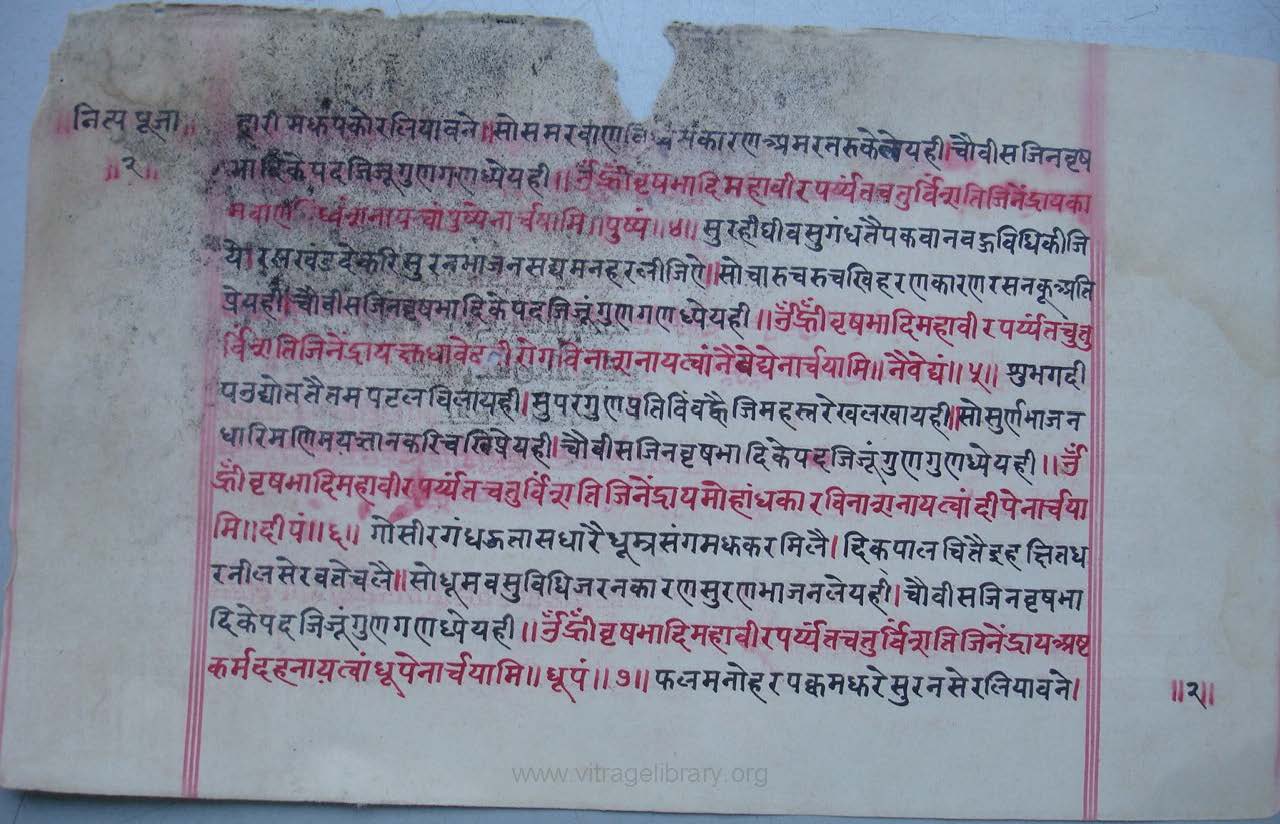 नित्य पूजा
२
हारी मर्कपकोरलियावने॥सोसमरवाण कारणअमरनरुकेलेयही।चौवीसजिनवृष
भादिकेपदजिजूगुणगणध्येयही॥ॐह्रीवृषभादिमहावीरपर्य्यंतचतुर्विंशतिजिनेंद्रायका
मवाण ध्वंशनायत्वांपुष्पेनार्चयामि॥पुष्पं॥४॥ सुरहीघीवसुगंधतैपकवानवऊविधिकीजि
ये।रसखंडदेकरिसुरनभाजनसद्यमनहरलीजिऐ॥सोचारुचरुचखिहरणकारणरसनकूअति
प्रेयही।चौवीसजिनवृषभादिकेपदजिजूंगुणगणध्येयही॥ॐह्रीवृषभादिमहावीरपर्य्यंतचतु
र्विंशतिजिनेंद्राय रोगविनाशनायत्वांनैवेद्येनार्चयामि॥नैवेद्यं॥५॥ शुभगदी
पउद्योततैतमपटलविलायही।सुपरगुणप्रतिविंवह्वैजिमहस्तरेखलखायही॥सोसुर्णभाजन
धारिमणिमयज्ञानकरिचखिप्रेयही।चौवीसजिनवृषभादिकेपदजिजूंगुणगुणध्येयही॥ॐ
ह्रीवृषभादिमहावीरपर्य्यंतचतुर्विंशतिजिनेंद्रायमोहांधकारविनाशनायत्वांदीपेनार्चया
मि॥दीपं॥६॥ गोसीरगंधऊतासधारैधूम्रसंगमऊकरमिलै।दिक्पालचितैइहक्षितध
रनीलसेरवतेचलै॥सोधूमवसुविधिजरनकारणसुरणभाजनलेयही।चौवीसजिनवृषभा
दिकेपदजिजूंगुणगणध्येयही॥ॐह्रीवृषभादिमहावीरपर्य्यंतचतुर्विंशतिजिनेंद्रायअष्ट
कर्मदहनायत्वांधूपेनार्चयामि॥धूपं॥७॥ फलमनोहरपक्वमऊरेसुरनसेरलियावने।
॥२॥
www.vitragelibrary.org